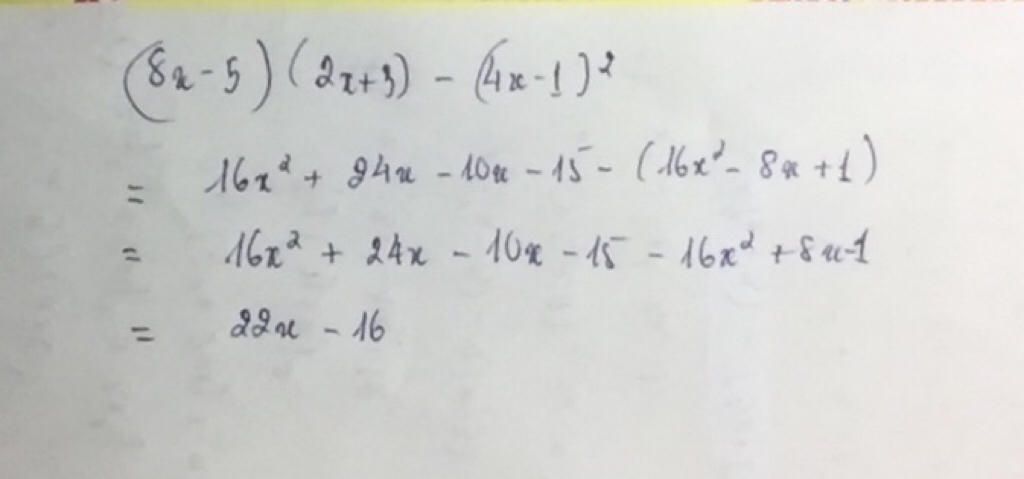 (8x - 5)(2x + 3) - (4x - 1)²
= 16x² + 24x - 10x - 15 - (16x² - 8x + 1)
= 16x² + 24x - 10x - 15 - 16x² + 8x - 1
= 22x - 16